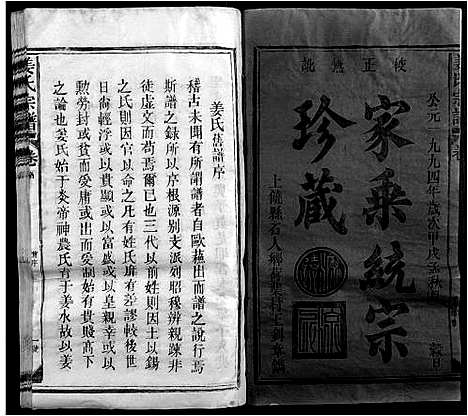 校正無訛
公元一九九四年歲次甲戌
穀日
家乘統宗
珍藏
上饒縣石人鄉
姜氏宗譜
卷
姜氏舊譜序
稽古未聞有所謂譜者自歐蘇出而譜之說行焉
斯譜之錄所以序根源別支派列昭穆辨親疎非
徒虛文而苟焉爾已也三代以前姓則因土以錫
之氏則因官以命之凡有姓氏庸有差謬較後世
日尚輕浮或以貴顯或以富盛或以皇親幸或以
勲勞封或貧而受庸或美而受制始有貴賤高下
之論也姜氏始于炎帝神農氏育于姜水故以姜
姜氏宗譜
卷
舊序